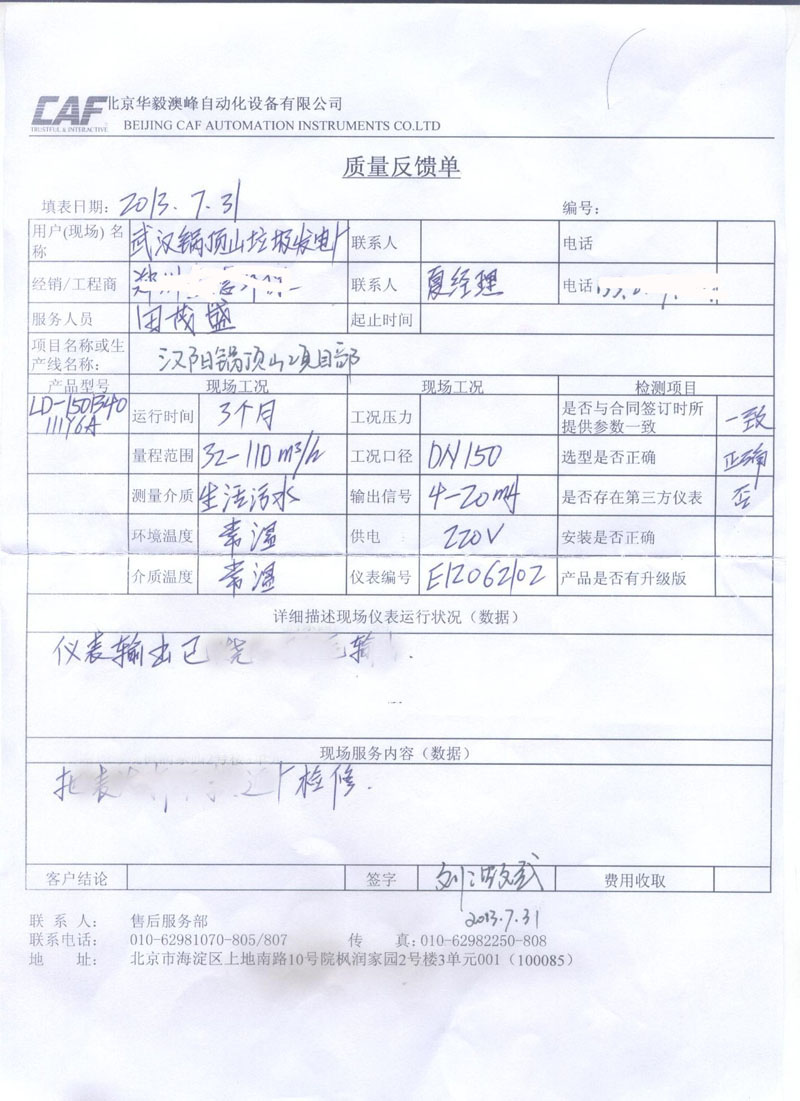 CAF 北京华毅澳峰自动化设备有限公司
TRUSTFUL & INTERACTIVE BEIJING CAF AUTOMATION INSTRUMENTS CO.LTD
质量反馈单
填表日期: 2013.7.31 编号:
用户(现场)名称 武汉锅顶山垃圾发电厂 联系人 电话
经销/工程商 联系人 夏经理 电话
服务人员 田茂盛 起止时间
项目名称或生产线名称: 汉阳锅顶山项目部
产品型号 现场工况 现场工况 检测项目
LD-150B340
11Y6A 运行时间 3个月 工况压力 是否与合同签订时所提供参数一致 一致
量程范围 32-110m³/h 工况口径 DN150 选型是否正确 正确
测量介质 生活污水 输出信号 4-20mA 是否存在第三方仪表 否
环境温度 常温 供电 220V 安装是否正确
介质温度 常温 仪表编号 E12062102 产品是否有升级版
详细描述现场仪表运行状况（数据）
仪表输出已
现场服务内容（数据）
厂检修.
客户结论 签字 费用收取
2013.7.31
联 系 人: 售后服务部
联系电话: 010-62981070-805/807 传 真: 010-62982250-808
地 址: 北京市海淀区上地南路10号院枫润家园2号楼3单元001（100085）